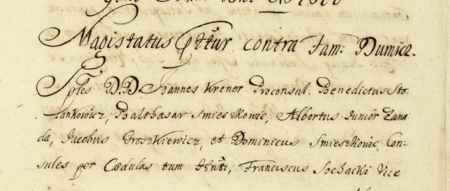 Magistatus contra fam: Dumice.
Sples D.D Joannes Krener Proconsul. Benedictus Sto
lankowicz, Balthasar Smieszkowic, Albertus Junior Zawa
da, Jacobus Groszkiewicz, et Dominicus Smieszkowic, Con
sules per Cædulas cum Franciscus Sochacki Vice